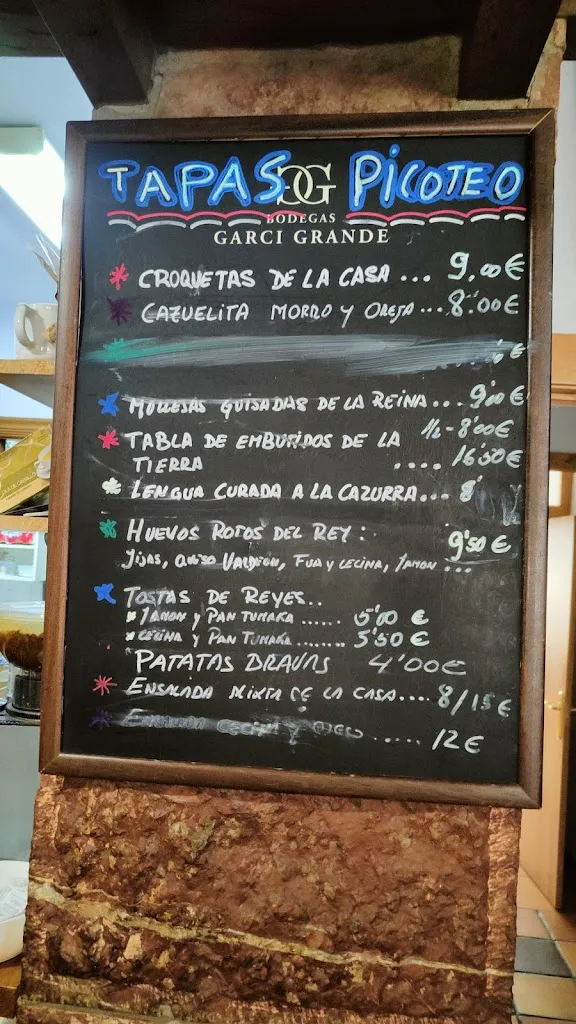 TAPAS GG PICOTEO
BODEGAS
GARCI GRANDE
CROQUETAS DE LA CASA ... 9,00€
CAZUELITA MORRO Y OREJA ... 8'00€
€
MOLLEJAS GUISADAS DE LA REINA ... 9'00€
TABLA DE EMBUTIDOS DE LA 1/2 - 8'00€
TIERRA .... 16'50€
LENGUA CURADA A LA CAZURRA ... 8'
HUEVOS ROTOS DEL REY : 9'50€
JIJAS, QUESO VALDEON, FUA Y CECINA, JAMON ...
TOSTAS DE REYES..
* JAMON Y PAN TUMAKA ...... 5'00 €
* CECINA Y PAN TUMAKA ....... 5'50 €
PATATAS BRAVAS 4'00€
ENSALADA MIXTA DE LA CASA .... 8/15€
Y ..... 12€